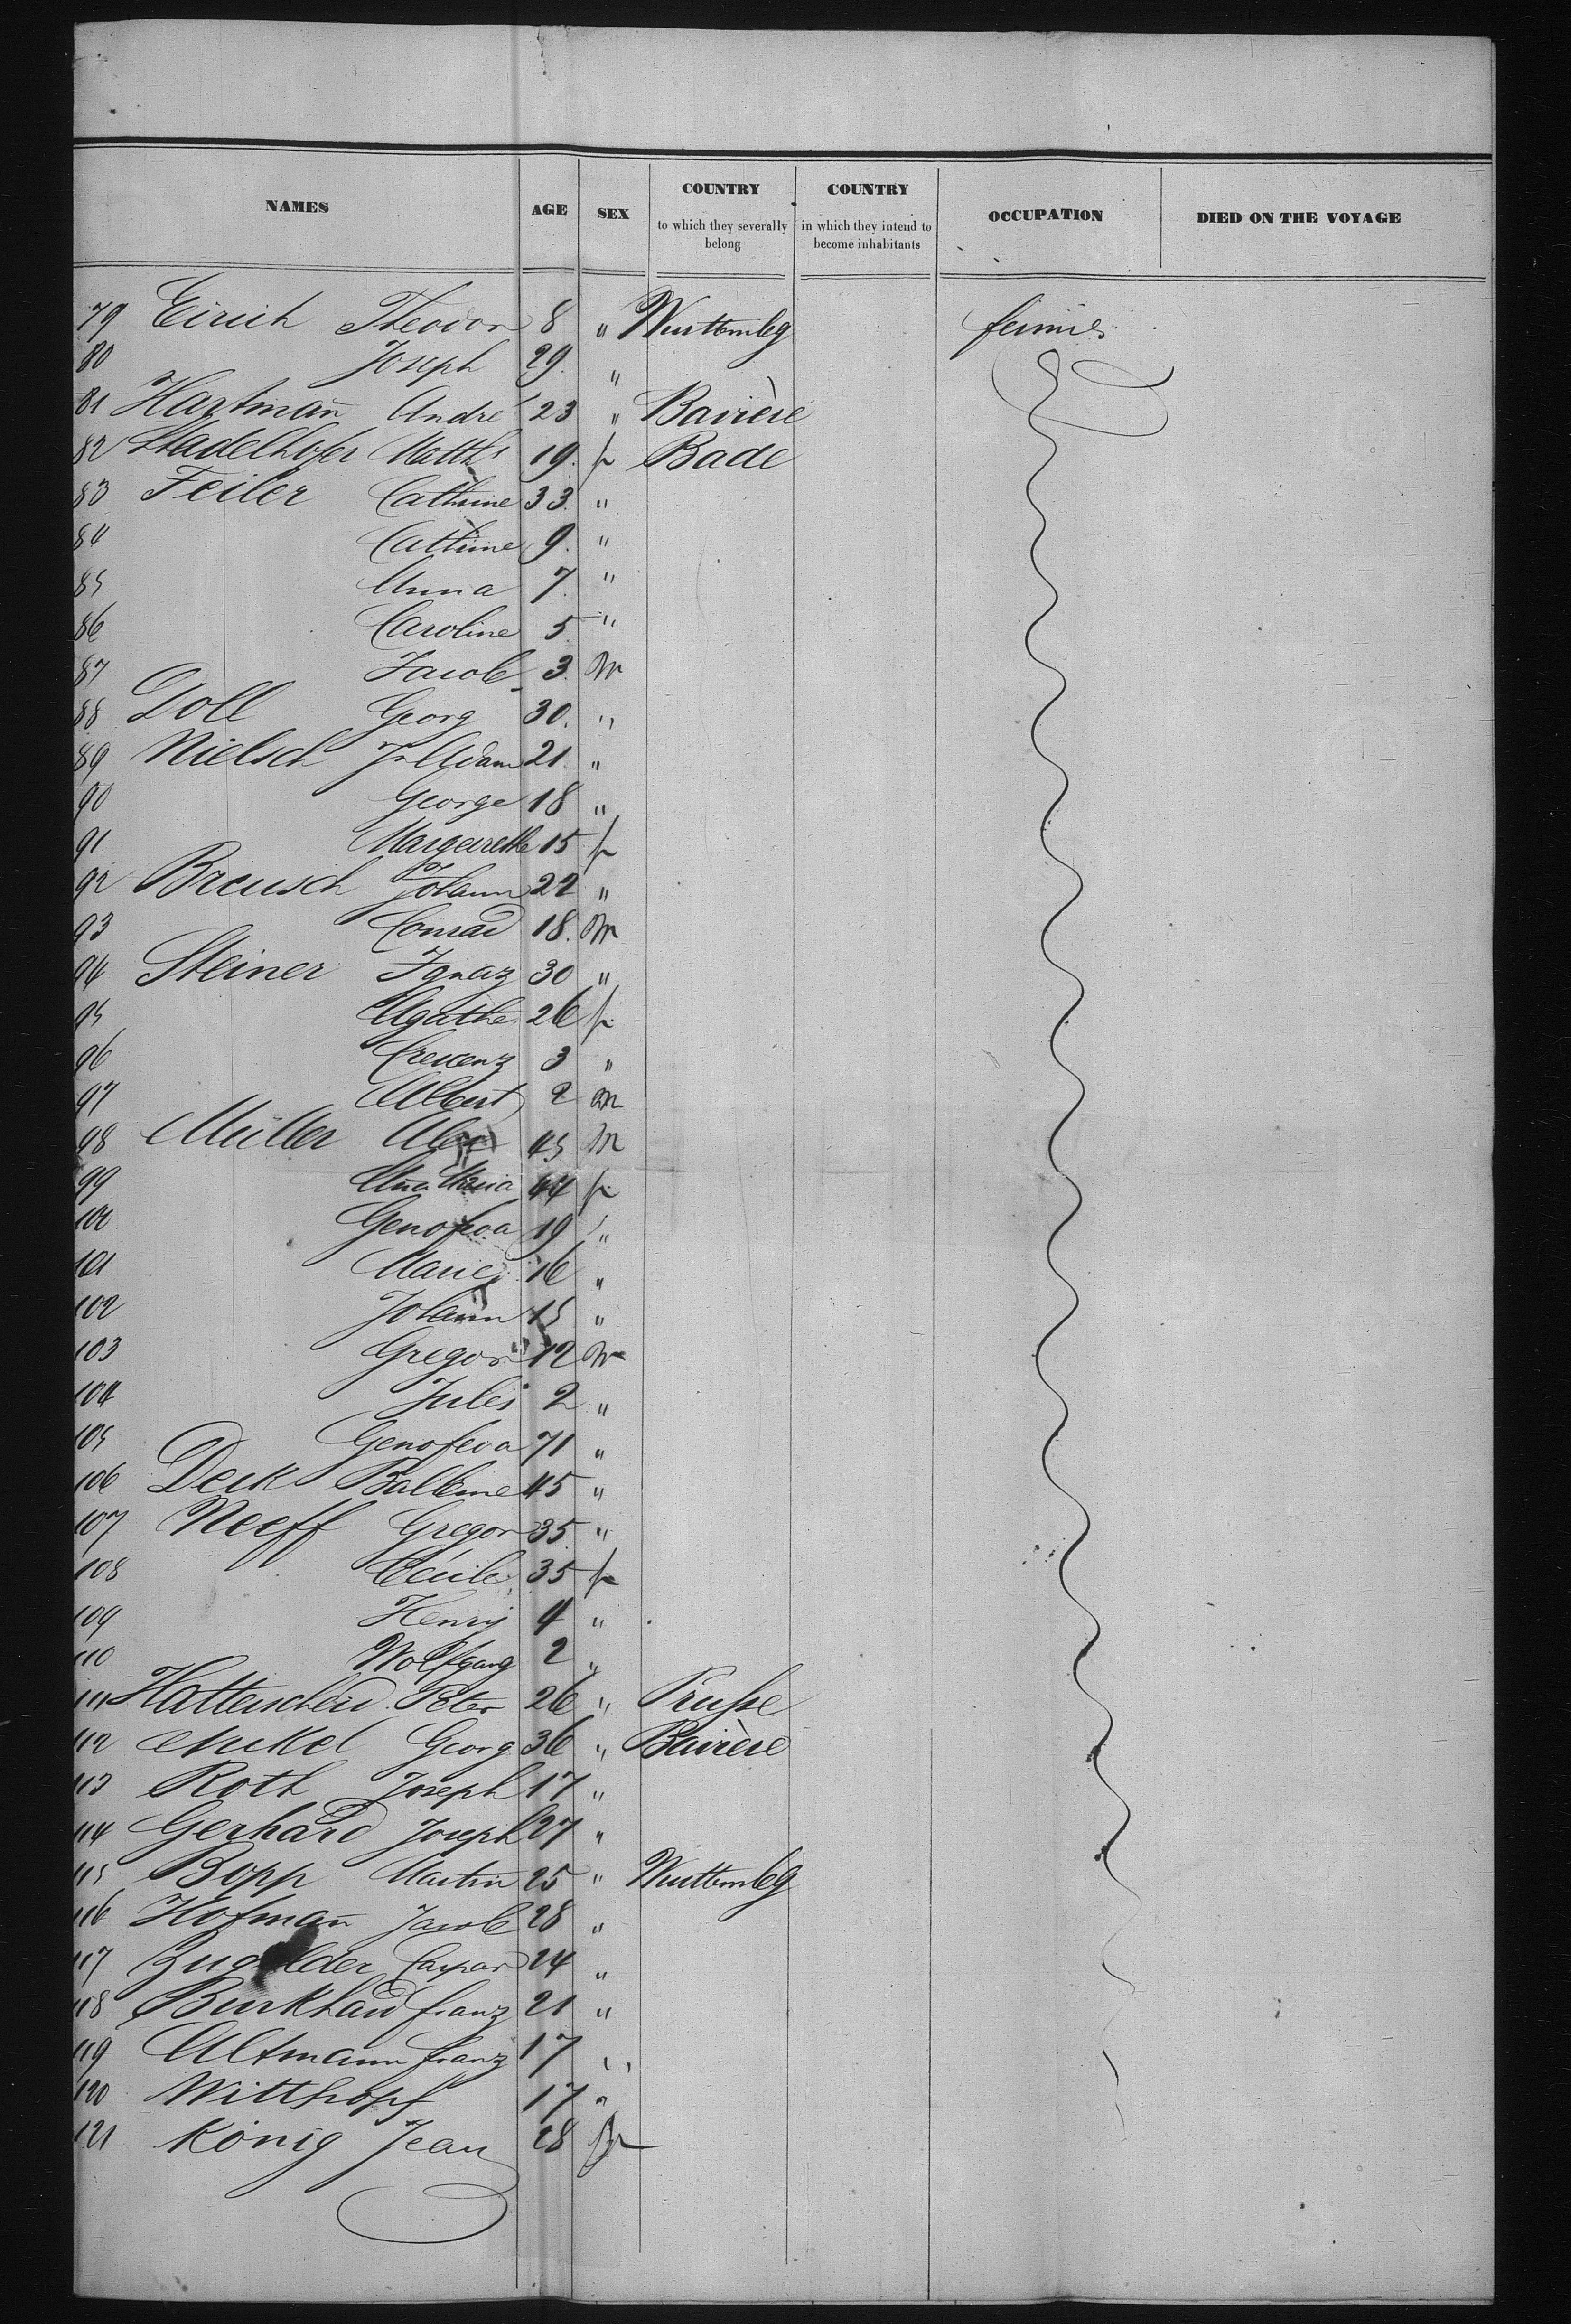 NAMES AGE SEX COUNTRY to which they severally belong COUNTRY in which they intend to become inhabitants OCCUPATION DIED ON THE VOYAGE
79 Eirich Theodor 8 " Wurttembg
80 Joseph 29. "
81 Hartman̄ André 23 " Bavière
82 Stadelhofer Matths 19. f Bade
83 Feiler Cathrine 33. "
84 Cathrine 9. "
85 Anna 7. "
86 Caroline 5. "
87 Jacob 3. M
88 Doll Georg 30. "
89 Nielsch Jn Adam 21. "
90 George 18 "
91 Margarethe 15 f
92 Breusch Johann 22 "
93 Conrad 18. M
94 Steiner Ignaz 30 "
95 Agathe 26 f
96 Crescenz 3 "
97 Albert 2 M
98 Müller 45 M
99 Ana Maria 44 f
100 Genofeva 19 "
101 Marie 16 "
102 Johann 15 "
103 Gregor 12 M
104 Jules 2 "
105 Genofeva 71 "
106 Deck 45 "
107 Neeff Gregor 35 "
108 Cécile 35 f
109 Henry 4 "
110 Wolfgang 2 "
111 Hattenscheid Peter 26 " Prusse
112 Georg 36 " Bavière
113 Roth Joseph 17 "
114 Gerhard Joseph 27 "
115 Bopp Martin 25 " Wurttembg
116 Hofman̄ Jacob 28 "
117 Caspar 24 "
118 Burkhard franz 21 "
119 Altmann franz 17 "
120 Witthopf 17 "
121 König Jean 28 M